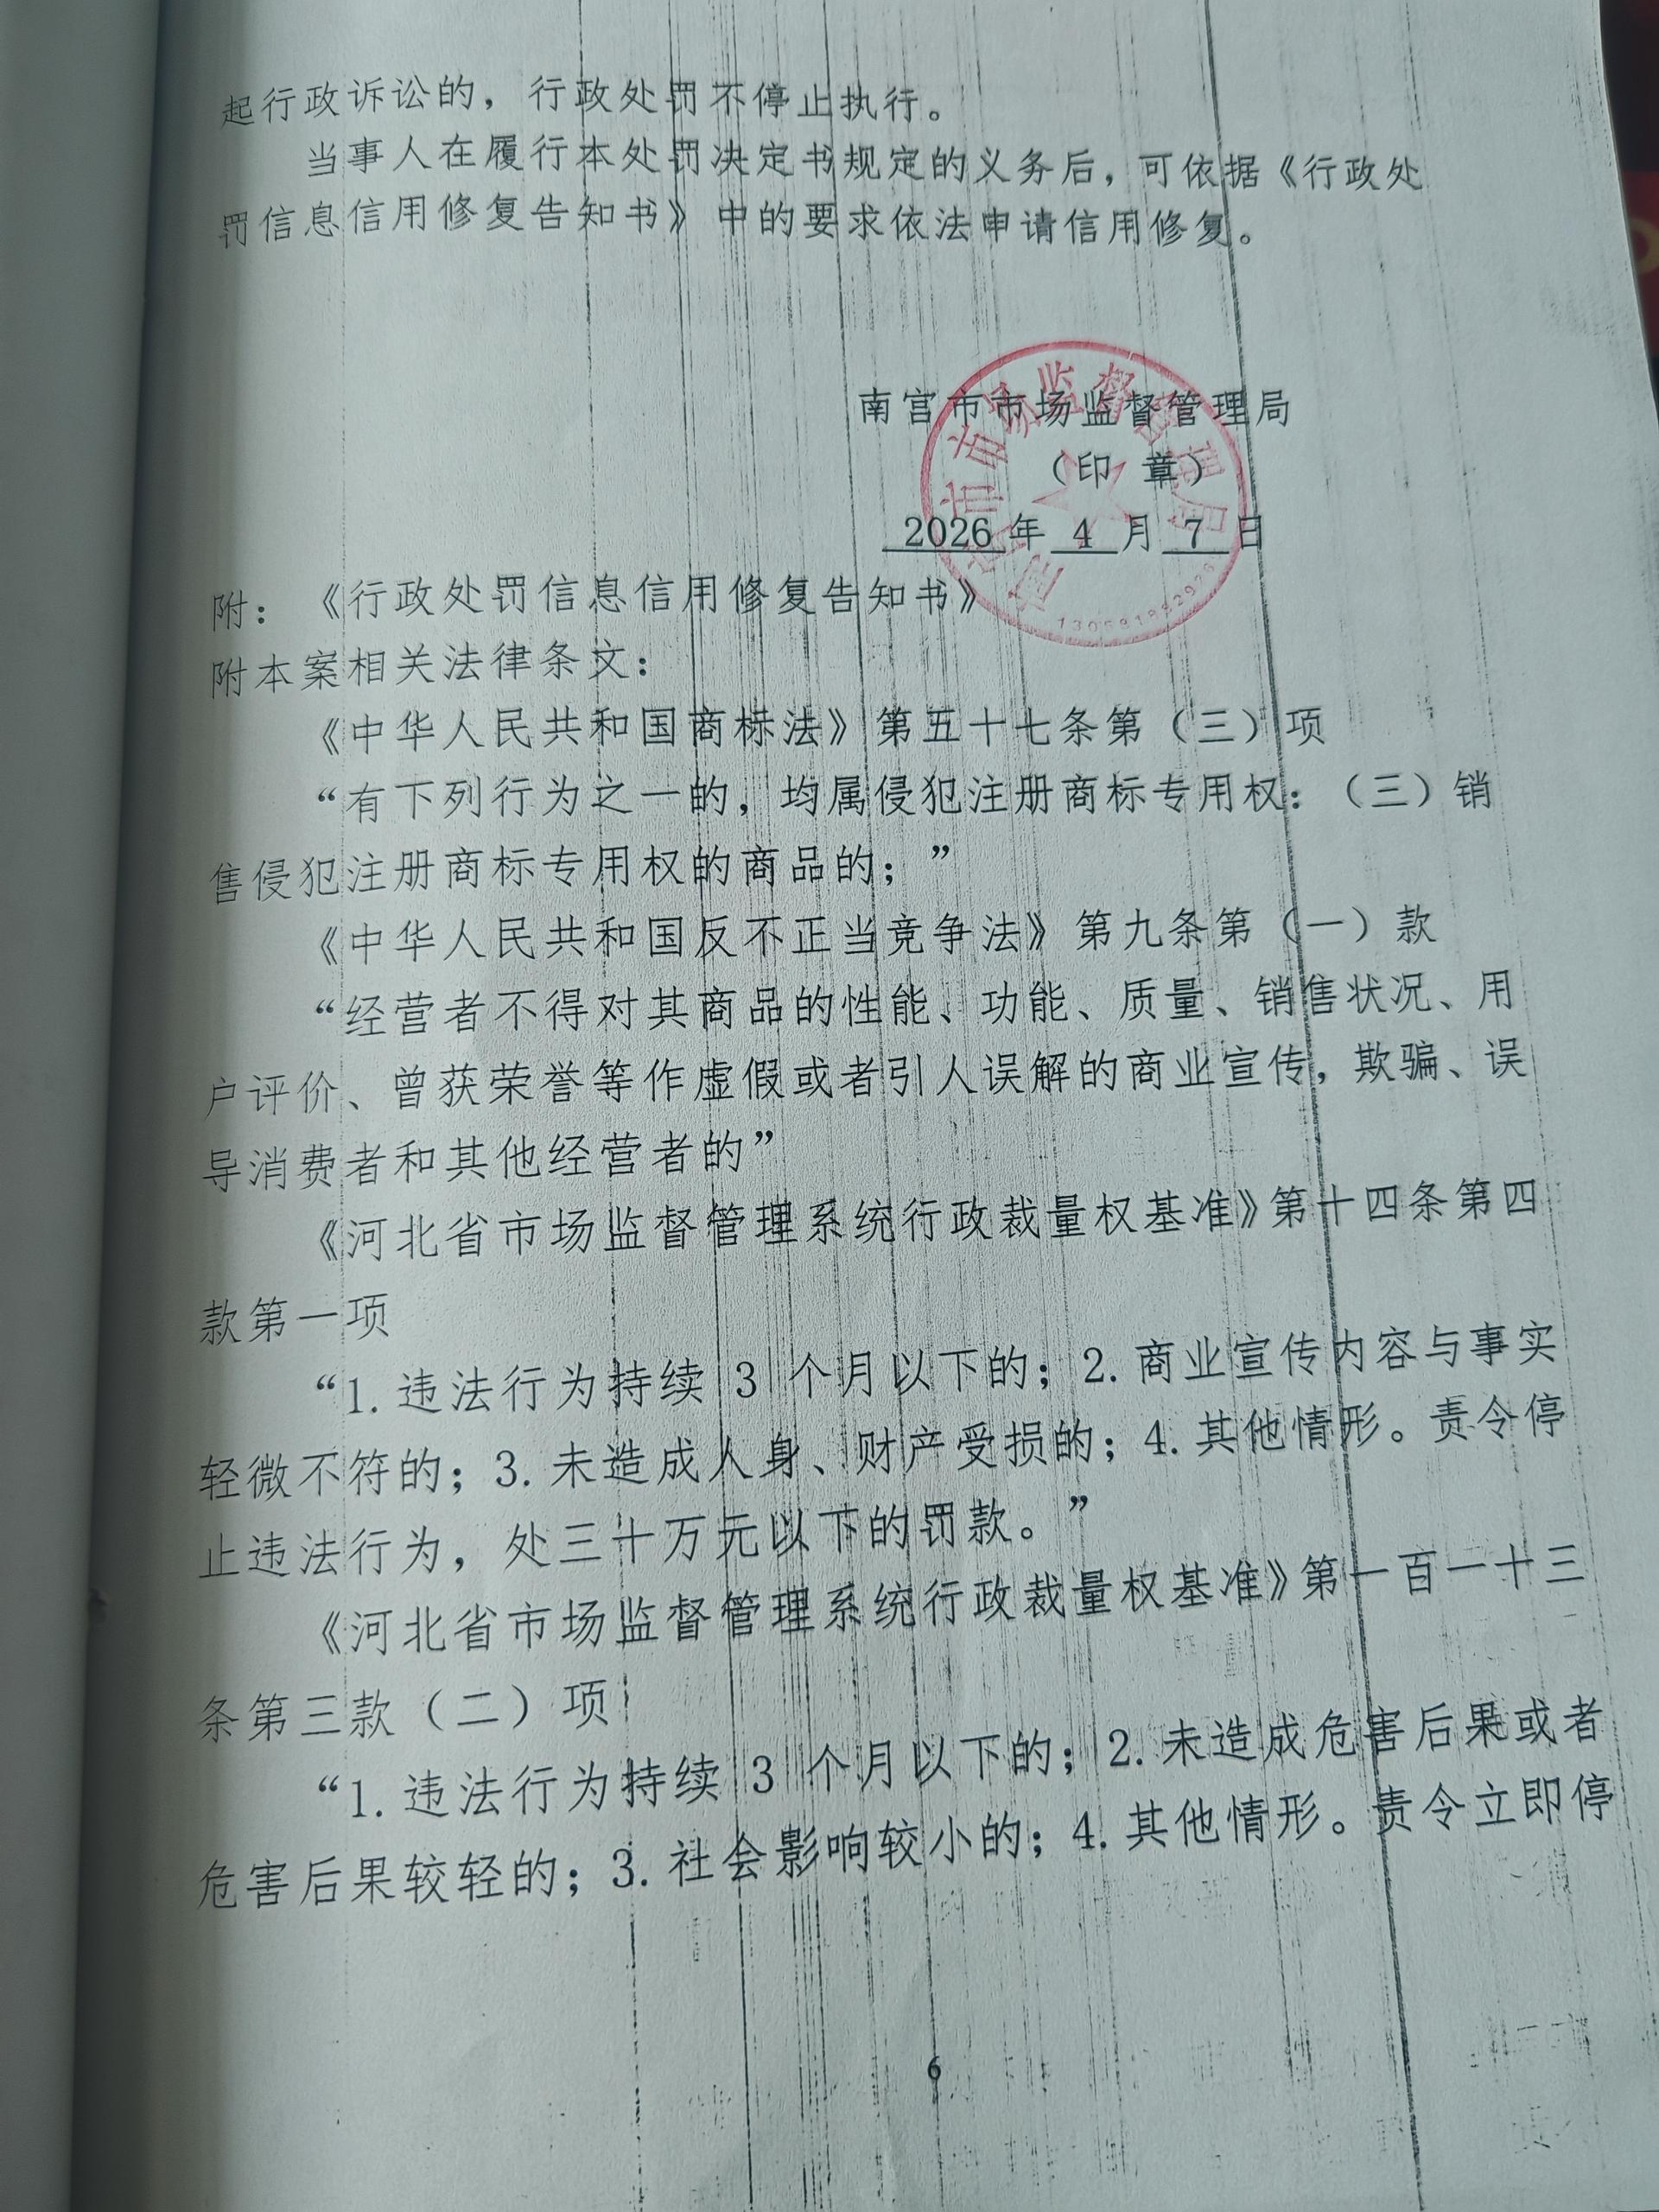 起行政诉讼的，行政处罚不停止执行。
当事人在履行本处罚决定书规定的义务后，可依据《行政处
罚信息信用修复告知书》中的要求依法申请信用修复。
南宫市市场监督管理局
（印 章）
2026年 4 月 7 日
附：《行政处罚信息信用修复告知书》
附本案相关法律条文：
《中华人民共和国商标法》第五十七条第（三）项
“有下列行为之一的，均属侵犯注册商标专用权：（三）销
售侵犯注册商标专用权的商品的；”
《中华人民共和国反不正当竞争法》第九条第（一）款
“经营者不得对其商品的性能、功能、质量、销售状况、用
户评价、曾获荣誉等作虚假或者引人误解的商业宣传，欺骗、误
导消费者和其他经营者的”
《河北省市场监督管理系统行政裁量权基准》第十四条第四
款第一项
“1.违法行为持续 3 个月以下的；2.商业宣传内容与事实
轻微不符的；3.未造成人身、财产受损的；4.其他情形。责令停
止违法行为，处三十万元以下的罚款。”
《河北省市场监督管理系统行政裁量权基准》第一百一十三
条第三款（二）项
“1.违法行为持续 3 个月以下的；2.未造成危害后果或者
危害后果较轻的；3.社会影响较小的；4.其他情形。责令立即停
6